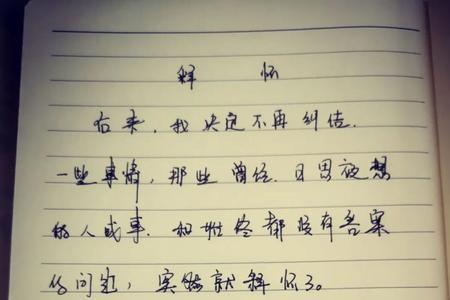 释 怀
后来,我决定不再纠结.
一些事情,那些曾经日思夜想
的人或事.和始终都没有答案
的问题,突然就释怀了。